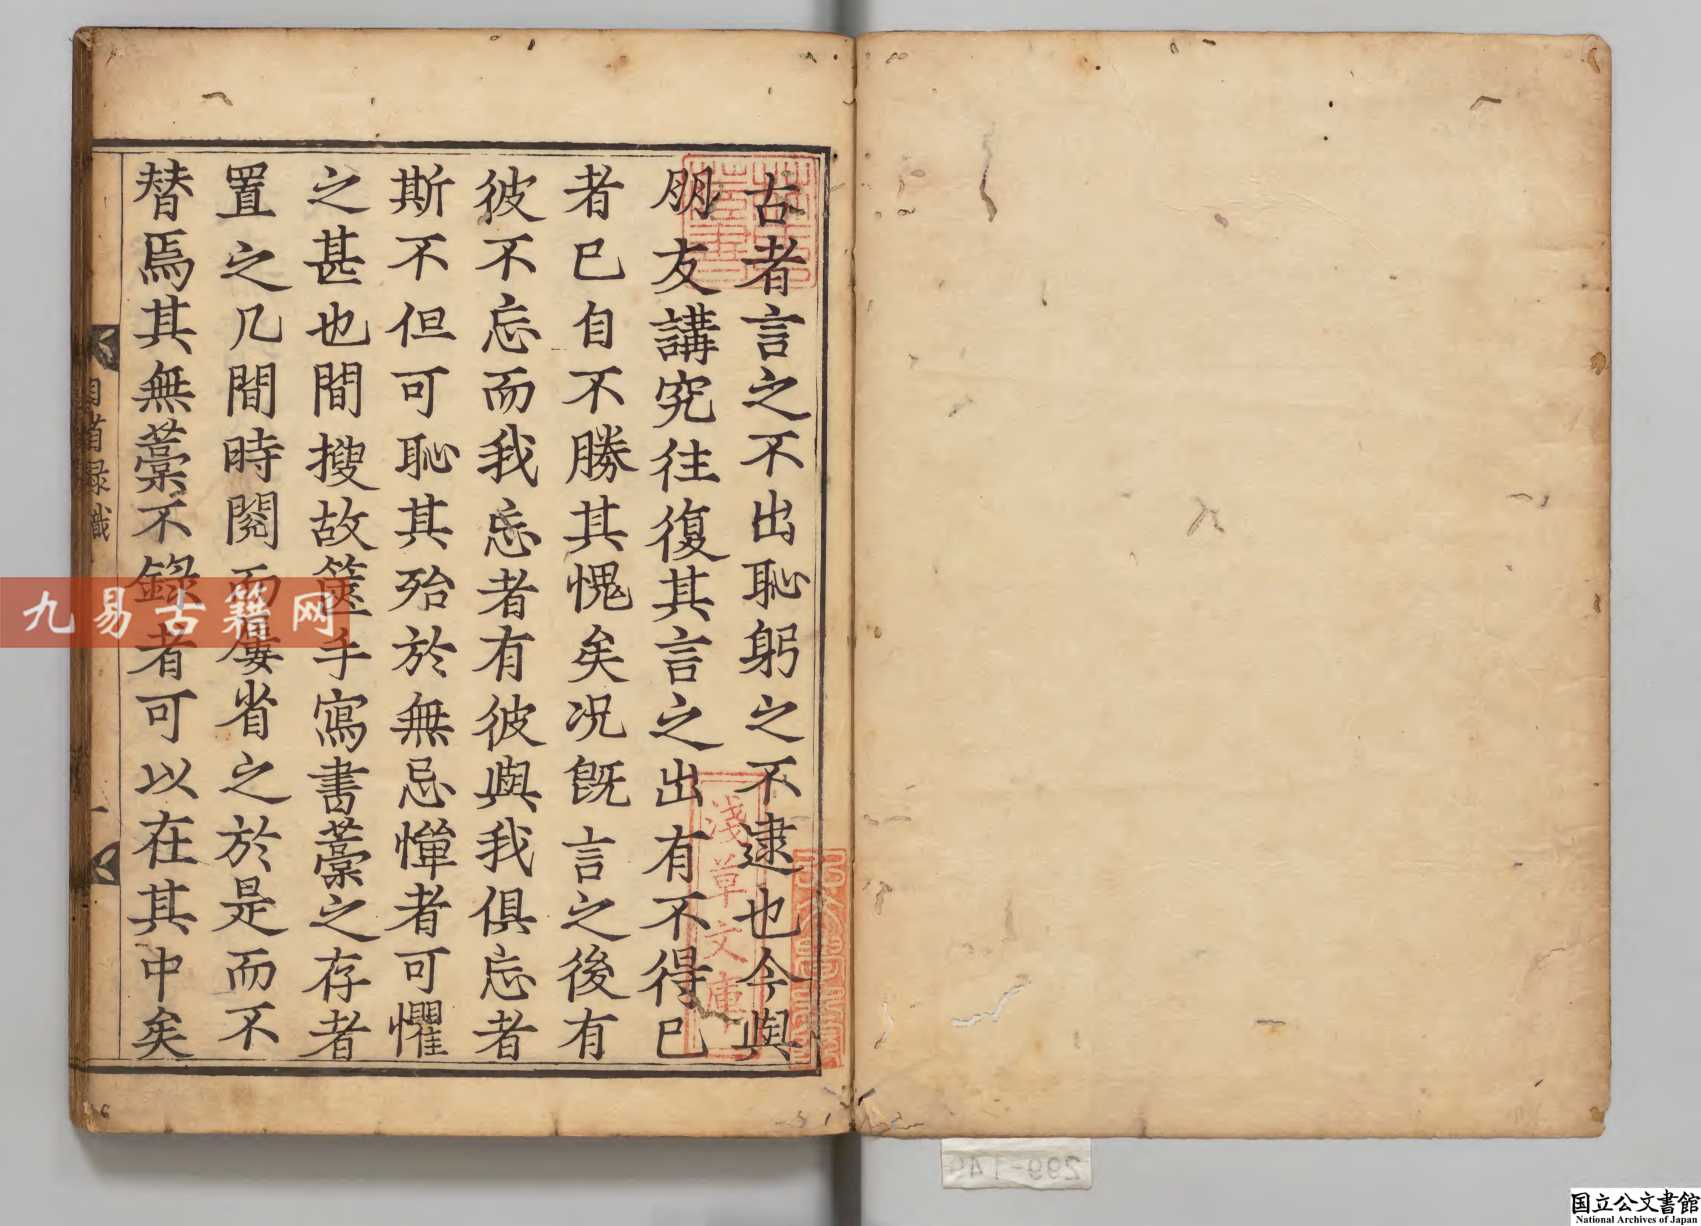 古者言之不出恥躬之不逮也今與
朋友講究往復其言之出有不得已
者已自不勝其愧矣况旣言之後有
彼不忘而我忘者有彼與我俱忘者
斯不但可恥其殆於無忌憚者可懼
之甚也間搜故篋手寫書藁之存者
置之几間時閱而屢省之於是而不
替焉其無藁不錄者可以在其中矣
自省録識
一
淺草文庫
九易古籍网
299-14
国立公文書館
National Archives of Japan